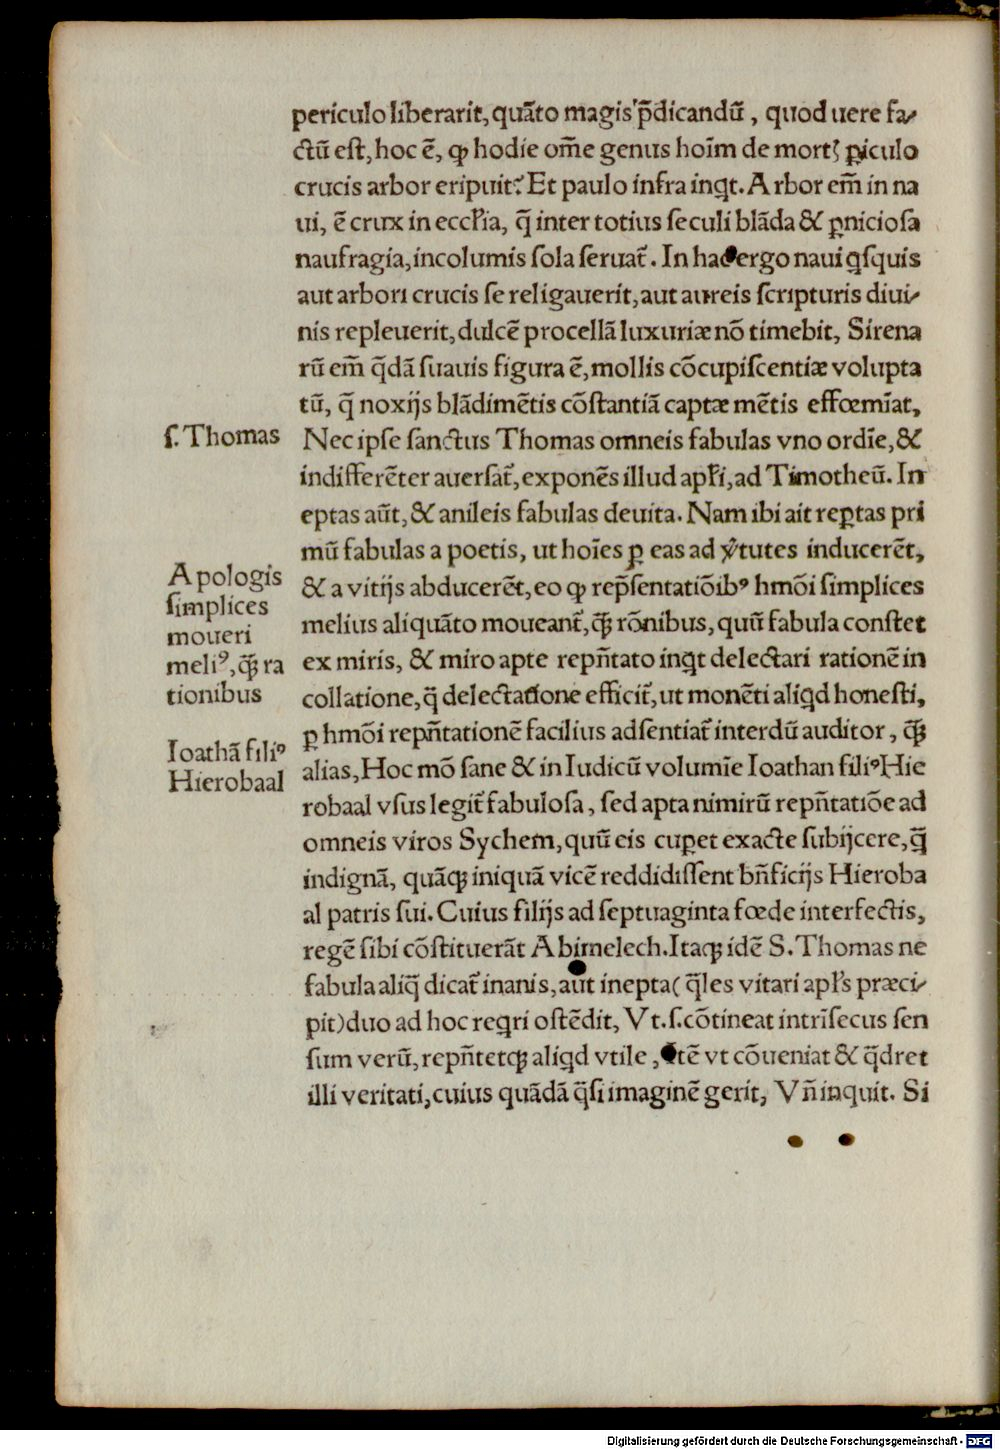 periculo liberarit, quãto magis p̄dicandũ, quod uere fa-
ctũ eſt, hoc ẽ, ꝙ hodie om̃e genus hoĩm de mortꝭ ꝑiculo
crucis arbor eripuit? Et paulo infra inq̇t. Arbor em̃ in na
ui, ẽ crux in eccɫia, q̃ inter totius ſeculi blãda & ꝑnicioſa
naufragia, incolumis ſola ſeruat̃. In hac ergo naui q̇ſquis
aut arbori crucis ſe religauerit, aut aureis ſcripturis diui-
nis repleuerit, dulcẽ procellã luxuriæ nõ timebit, Sirena
rũ em̃ q̃dã ſuauis figura ẽ, mollis cõcupiſcentiæ volupta
tũ, q̃ noxijs blãdimẽtis cõſtantiã captæ mẽtis effœmĩat,
ſ. Thomas
Nec ipſe ſanctus Thomas omneis fabulas vno ordĩe, &
indifferẽter auerſat̃, exponẽs illud apɫi, ad Timotheũ. In
eptas aũt, & anileis fabulas deuita. Nam ibi ait reꝑtas pri
mũ fabulas a poetis, ut hoĩes ꝑ eas ad v̓tutes inducerẽt,
Apologis
ſimplices
moueri
meliꝰ, q̃ꝫ ra
tionibus
& a vitijs abducerẽt, eo ꝙ rep̃ſentatiõibꝰ hmõi ſimplices
melius aliquãto moueant̃, q̃ꝫ rõnibus, quũ fabula conſtet
ex miris, & miro apte repñtato inq̇t delectari rationẽ in
collatione, q̃ delectatione efficit̃, ut monẽti aliq̇d honeſti,
ꝑ hmõi repñtationẽ facilius adſentiat̃ interdũ auditor, q̃ꝫ
Ioathã filiꝰ
Hierobaal
alias, Hoc mõ ſane & in Iudicũ volumĩe Ioathan filiꝰ Hie
robaal vſus legit̃ fabuloſa, ſed apta nimirũ repñtatiõe ad
omneis viros Sychem, quũ eis cuꝑet exacte ſubijcere, q̃
indignã, quãqꝫ iniquã vicẽ reddidiſſent bñficijs Hieroba
al patris ſui. Cuius filijs ad ſeptuaginta fœde interfectis,
regẽ ſibi cõſtituerãt Abimelech. Itaqꝫ idẽ S. Thomas ne
fabula aliq̃ dicat̃ inanis, aut inepta (q̃les vitari apɫs præci-
pit) duo ad hoc req̇ri oſtẽdit, Vt .ſ. cõtineat intrĩſecus ſen
ſum verũ, repñtetqꝫ aliq̇d vtile, Itẽ vt cõueniat & q̃dret
illi veritati, cuius quãdã q̃ſi imaginẽ gerit, Vñ inquit. Si
Digitalisierung gefördert durch die Deutsche Forschungsgemeinschaft - DFG